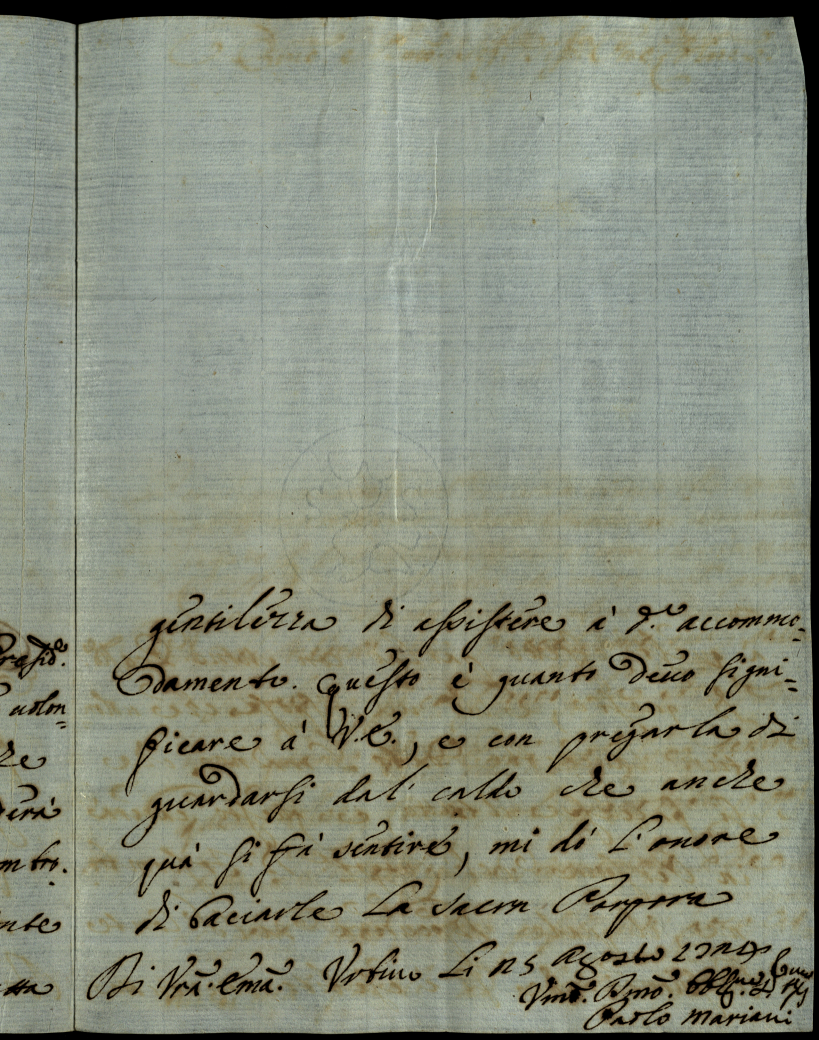 gentilezza di assistere à d.º accommo=
damento. Questo è quanto devo signi=
ficare à V.E., e con pregarla di
guardarsi dal' caldo che anche
quà si fà sentire, mi dò l'onore
di baciarle la sacra Porpora
Di Vrã. Emã. Urbino Li 25 Agosto
Umõ. Devmõ. Obblmõ.
Paolo Mariani